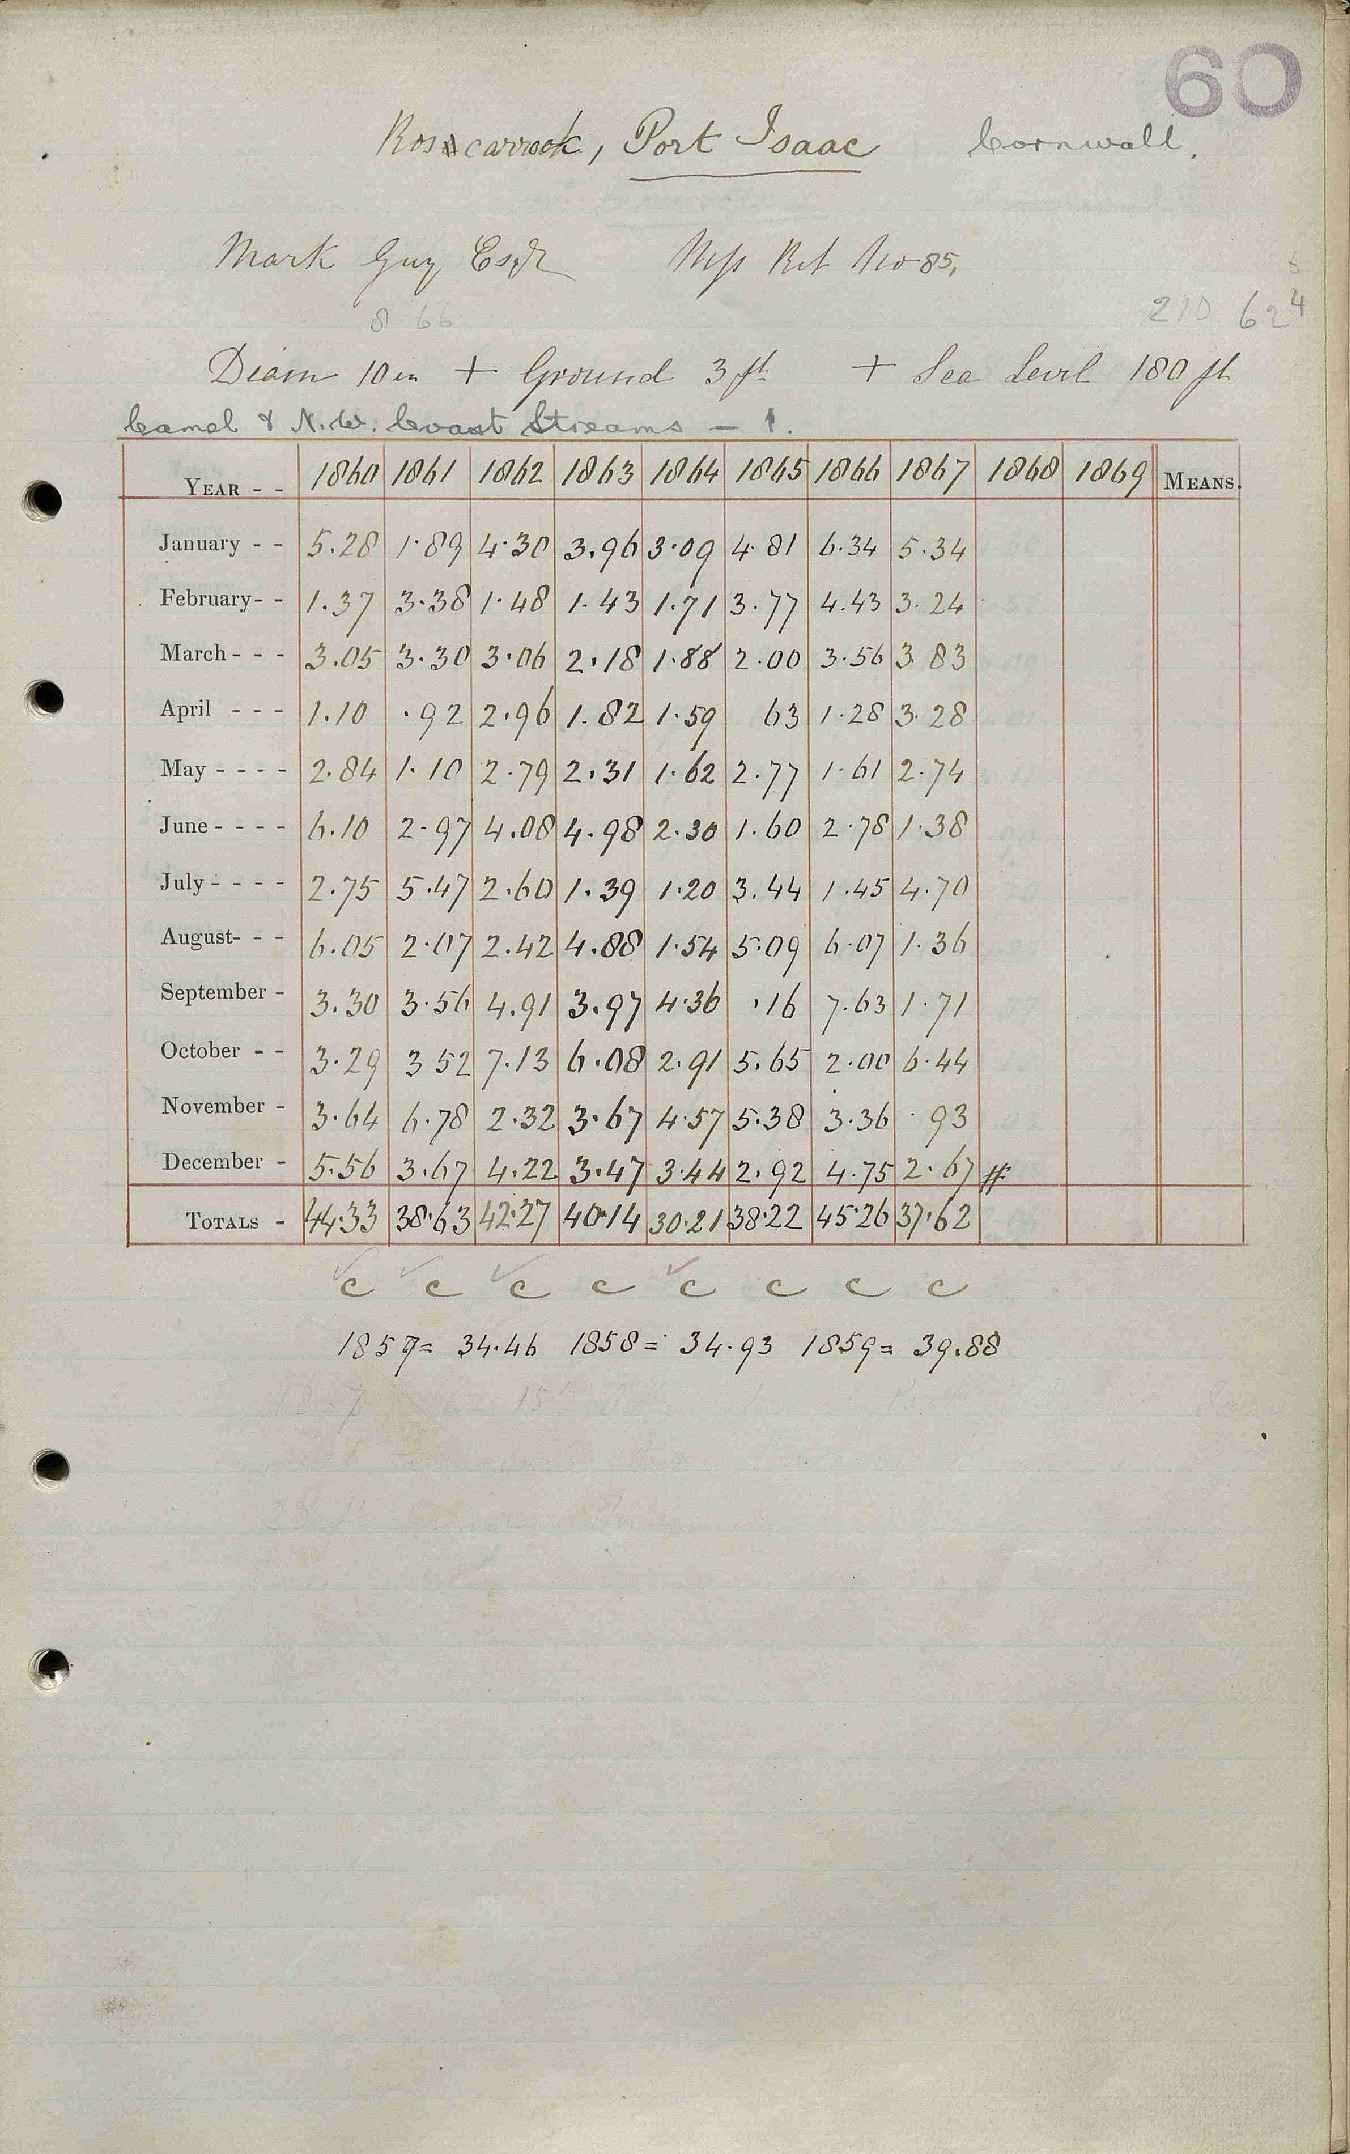 60
Roscarrock, Port Isaac Cornwall.
Mark Guy Esqr Mss Ret No 85,
8 66
210 624
Diam 10 in + Ground 3 ft + Sea Level 180 ft
Camel & N.W. Coast Streams - 1.
YEAR - - 1860 1861 1862 1863 1864 1865 1866 1867 1868 1869 MEANS.
January - - 5.28 1.89 4.30 3.96 3.09 4.81 6.34 5.34
February - - 1.37 3.38 1.48 1.43 1.71 3.77 4.43 3.24
March - - - 3.05 3.30 3.06 2.18 1.88 2.00 3.56 3 83
April - - - 1.10 .92 2.96 1.82 1.59 63 1.28 3.28
May - - - - 2.84 1.10 2.79 2.31 1.62 2.77 1.61 2.74
June - - - - 6.10 2.97 4.08 4.98 2.30 1.60 2.78 1.38
July - - - - 2.75 5.47 2.60 1.39 1.20 3.44 1.45 4.70
August- - - 6.05 2.07 2.42 4.88 1.54 5.09 6.07 1.36
September - 3.30 3.56 4.91 3.97 4.36 .16 7.63 1.71
October - - 3.29 3 52 7.13 6.08 2.91 5.65 2.00 6.44
November - 3.64 6.78 2.32 3.67 4.57 5.38 3.36 .93
December - 5.56 3.67 4.22 3.47 3.44 2.92 4.75 2.67 #
TOTALS - 44.33 38.63 42.27 40.14 30.21 38.22 45.26 37.62
c c c c c c c c
1857= 34.46 1858= 34.93 1859= 39.88